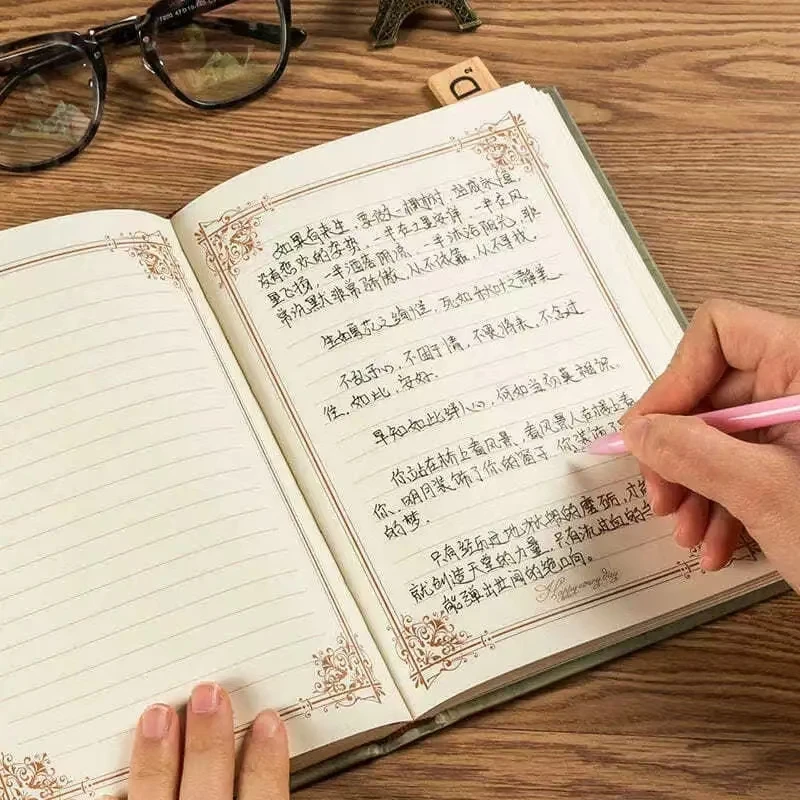 如果有来生，要做一棵树，站成永恒，
没有悲欢的姿势。一半在土里安详，一半在风
里飞扬，一半洒落阴凉，一半沐浴阳光，非
常沉默非常骄傲，从不依靠，从不寻找。
生如夏花之绚烂，死如秋叶之静美。
不乱于心，不困于情，不畏将来，不念过
往，如此，安好。
早知如此绊人心，何如当初莫相识。
你站在桥上看风景，看风景人在楼上看
你，明月装饰了你的窗子，你装饰了
的梦。
只有经历过地狱般的磨砺，才
就创造天堂的力量，只有流过血的
能弹出世间的绝响。
Happy every day
D